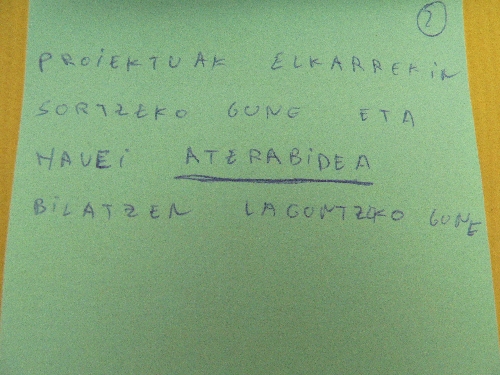 2
PROIEKTUAK ELKARREKIN
SORTZEKO GUNE ETA
HAUEI ATERABIDEA
BILATZEN LAGUNTZEKO GUNE